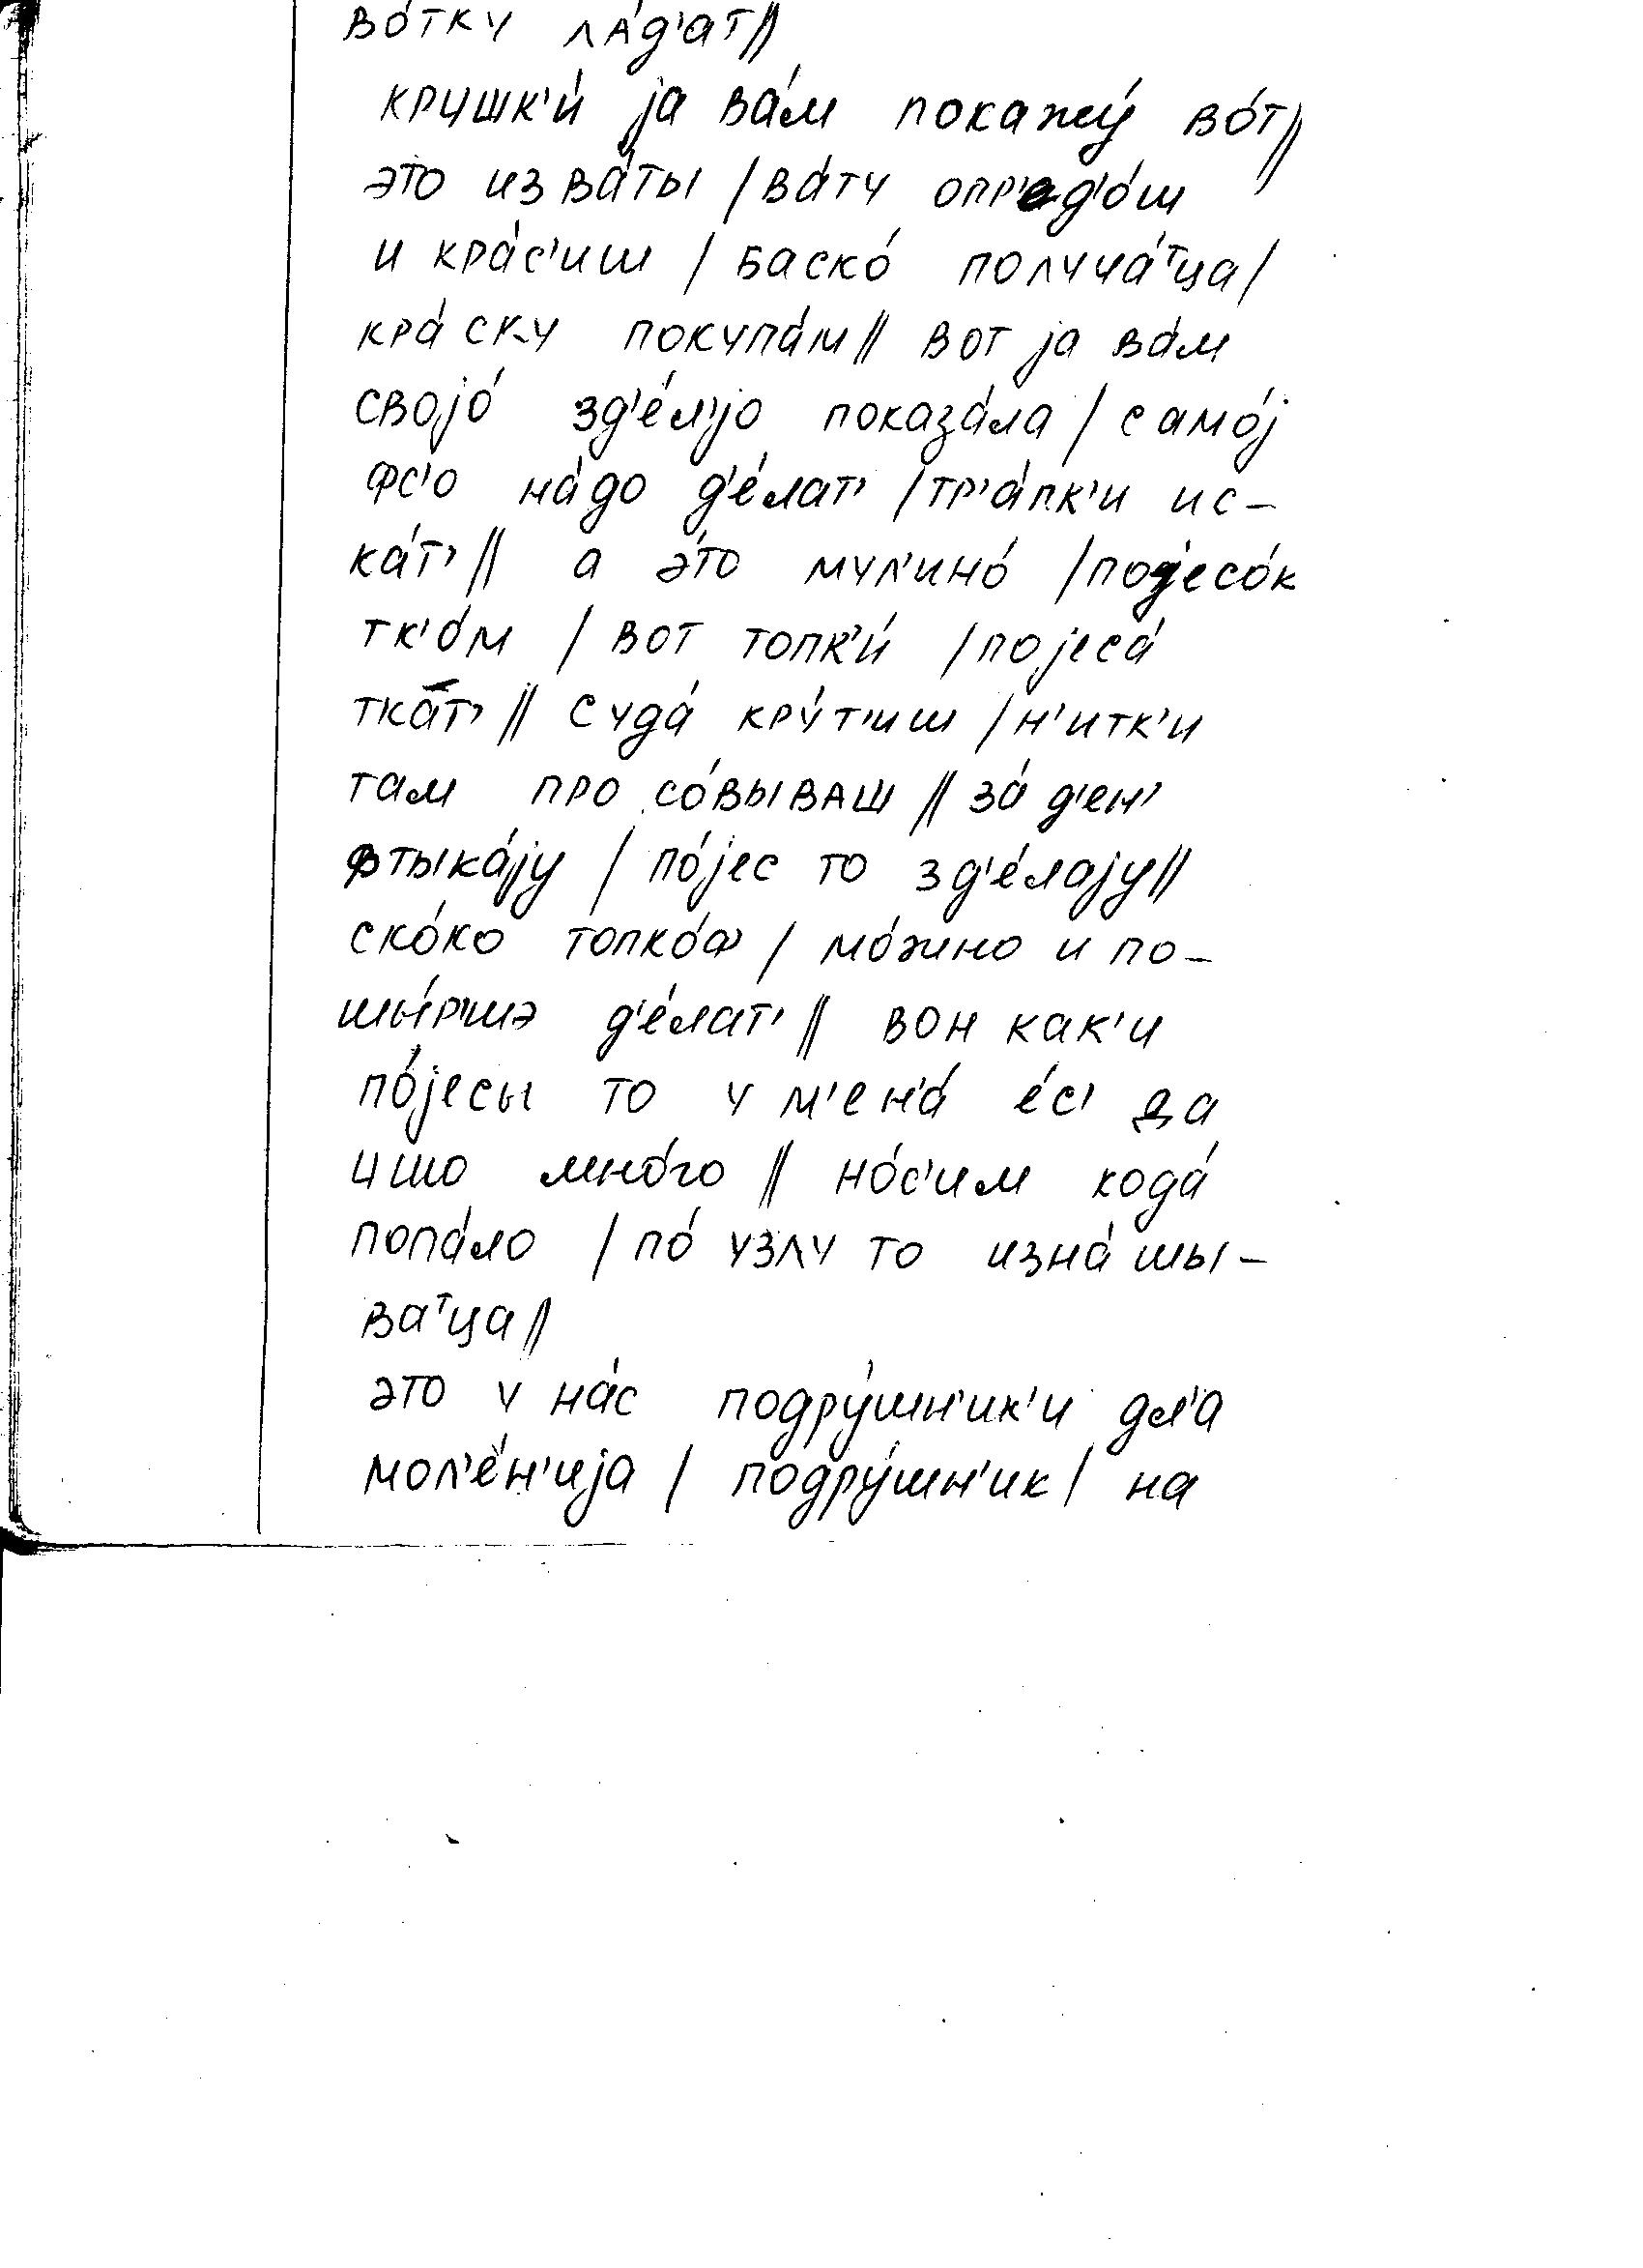 во́тку ла́д'ат//
кружк'и́ ја ва́м покажу́ во́т//
это из ва́ты / ва́ту опр'ад'о́ш
и кра́с'иш / баско́ получа́тца /
кра́ску покупа́м // вот ја ва́м
својо́ зд'е́л'јо показа́ла / само́ј
фс'о на́до д'е́лат' / тр'а́пк'и ис-
ка́т' // а э́то мул'ино́ / појесо́к
тк'о́м / вот топк'и́ / појеса́
тка́т' // суда́ кру́т'иш / н'итк'и
там про со́вываш // за́ д'ен'
фтыка́ју / по́јес то зд'е́лају //
ско́ко топко́ф / мо́жно и по-
шы́р'шэ д'е́лат' // вон как'и
по́јесы то у м'ен'а́ е́с' да
ишо мно́го // но́с'им кода́
попа́ло / по́ узлу то изна́шы-
ватца //
это у на́с подру́шн'ик'и дл'а
мол'е́н'ија / подру́шн'ик / на